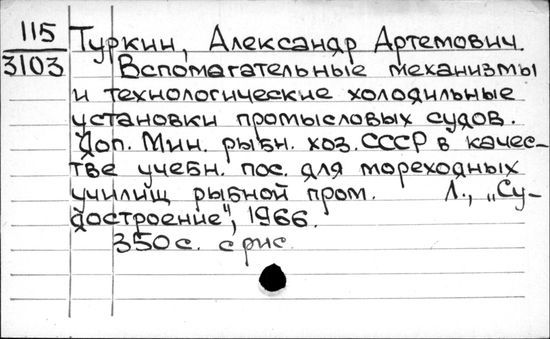 115
3103
Туркин, Александр Артемович.
Вспомагательные механизмы
и технологические холодильные
установки промысловых судов.
Доп. Мин. рыбн. хоз. СССР в качес-
тве учебн. пос. для мореходных
училищ рыбной пром. Л., „Су-
достроение", 1966.
350 с. с рис.